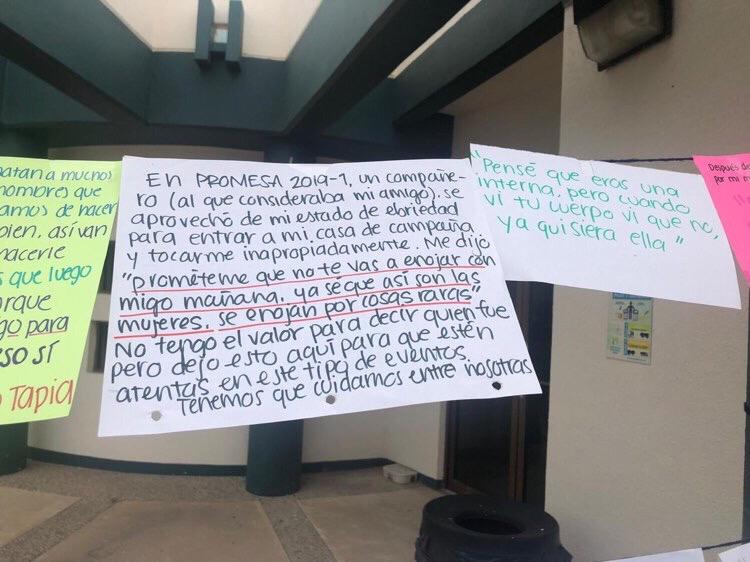 a muchos
hombres que
de hacer
bien, asi van
hacerle
s que luego
porque
para
SO SÍ
TAPIA
EN PROMESA 2019-1, un compañe-
ro (al que consideraba mi amigo), se
aprovechó de mi estado de ebriedad
para entrar a mi casa de campaña
y tocarme inapropiadamente. Me dijo
"prométeme que no te vas a enojar con
migo mañana, ya sé que así son las
mujeres, se enojan por cosas raras"
No tengo el valor para decir quien fue
pero dejo esto aquí para que estén
atentas en este tipo de eventos.
Tenemos que cuidarnos entre nosotras
"Pensé que eras una
interna, pero cuando
vi tu cuerpo vi que no,
ya quisiera ella"
Después de
por mi